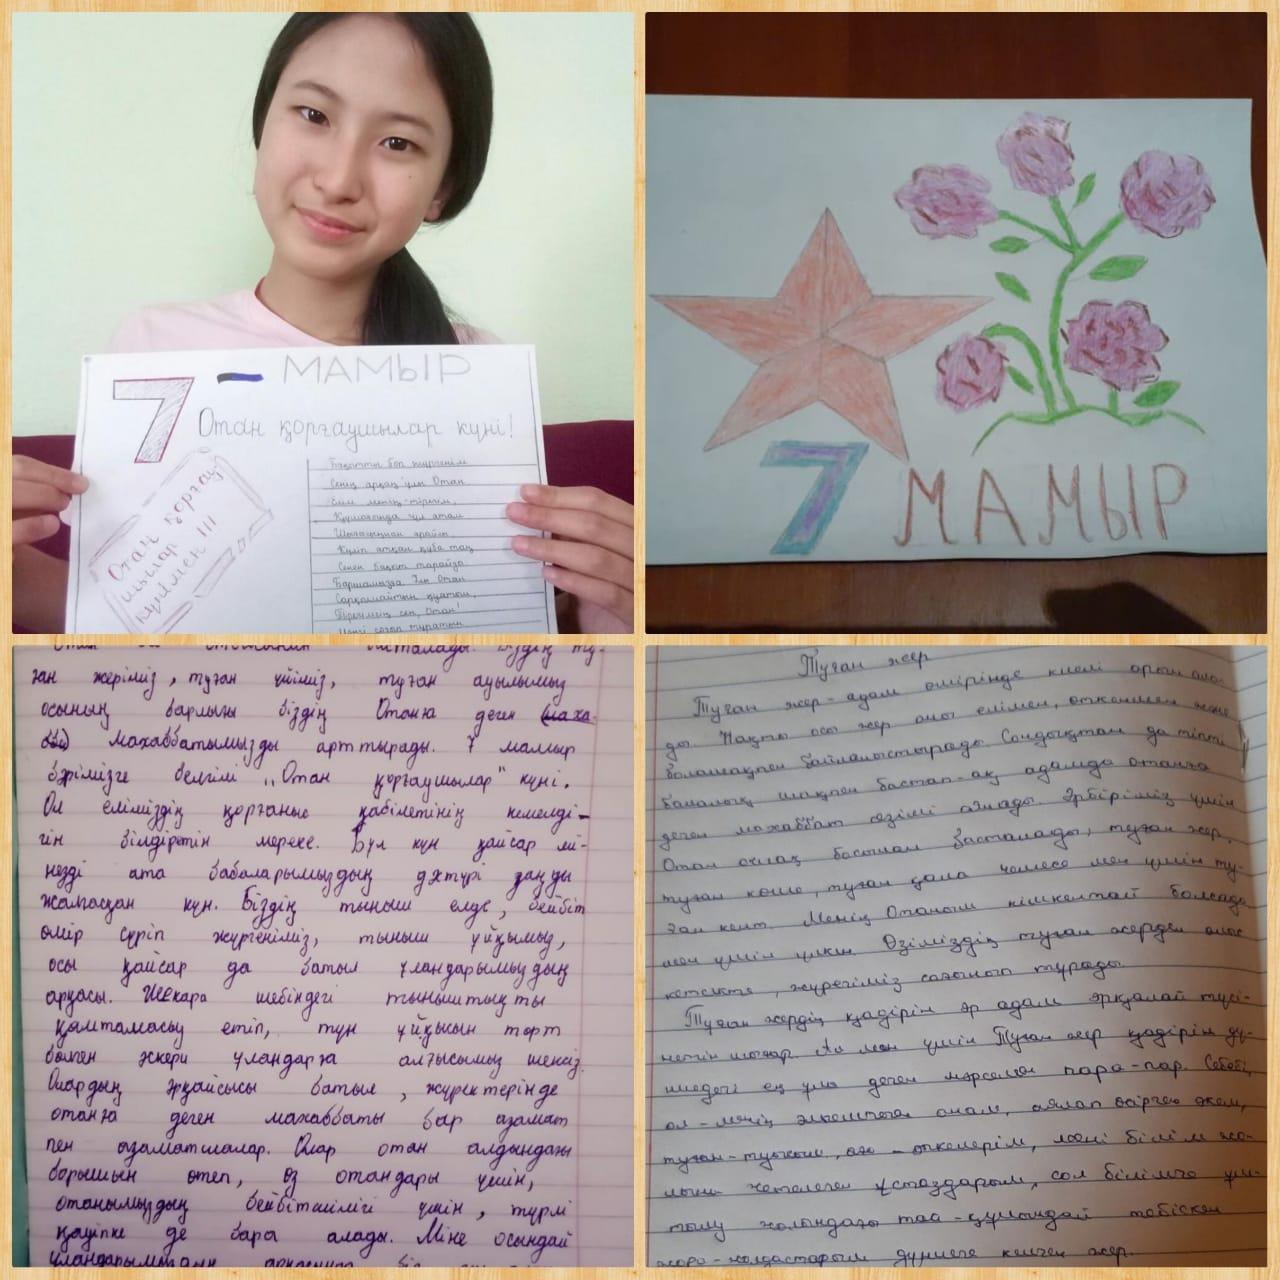 7 - МАМЫР
Отан қорғаушылар күні!
Отан қорғау
шылар
күнімен !!!
Бақытты боп жүргенім
Сенің арқаң ұлы Отан
Күліп атқан құба таң
Сенен бақыт тарайды
Баршамызға Ұлы Отан
Сарқылмайтын қуатың,
Тірегімсің сен, Отан!
7 МАМЫР
басталады. Біздің ту-
ған жеріміз, туған үйіміз, туған ауылымыз
осының барлығы біздің Отанға деген
махаббатымызды арттырады. 7 мамыр
бәрімізге белгілі ,,Отан қорғаушылар" күні.
Ол еліміздің қорғаныс қабілетінің кемелді-
гін білдіретін мереке. Бұл күн қайсар мі-
незді ата бабаларымыздың дәстүрі заңды
жалғасқан күн. Біздің тыныш елде, бейбіт
өмір сүріп жүргеніміз, тыныш ұйқымыз,
осы қайсар да батыл ұландарымыздың
арқасы. Шекара шебіндегі тыныштықты
қамтамасыз етіп, түн ұйқысын төрт
бөлген әскери ұландарға алғысымыз шексіз.
Олардың әрқайсысы батыл, жүректерінде
отанға деген махаббаты бар азамат
пен азаматшалар. Олар отан алдындағы
борышын өтеп, өз отандары үшін,
отанымыздың бейбітшілігі үшін, түрлі
қауіпке де бара алады. Міне осындай
ұландарымыздың арқасында біз
Туған жер
Туған жер - адам өмірінде киелі орын ала-
ды. Нақты осы жер оны елімен, өткенмен және
болашақпен байланыстырады. Сондықтан да тіпті
балалық шақпен бастап-ақ адамда отанға
деген махаббат сезімі оянады. Әрбіріміз үшін
Отан ошақ басынан басталады, туған жер,
туған көше, туған қала немесе мен үшін ту-
ған кент. Менің Отаным кішкентай болсада
мен үшін үлкен. Өзіміздің туған жерден алыс
кетсекте, жүрегіміз сағынып тұрады.
Туған жердің қадірін әр адам әрқалай түсі-
нетін шығар. Ал мен үшін Туған жер қадірін дү-
ниедегі ең ұлы деген нәрсемен пара-пар. Себебі,
ол - менің әлпештеген анам, аялап өсірген әкем,
туған-туысым, аға - әпкелерім, мені білім жо-
лына жетелеген ұстаздарым, сол білімге ұм-
тылу жолындағы тай - құлындай тебіскен
жора-жолдастарым дүниеге келген жер.